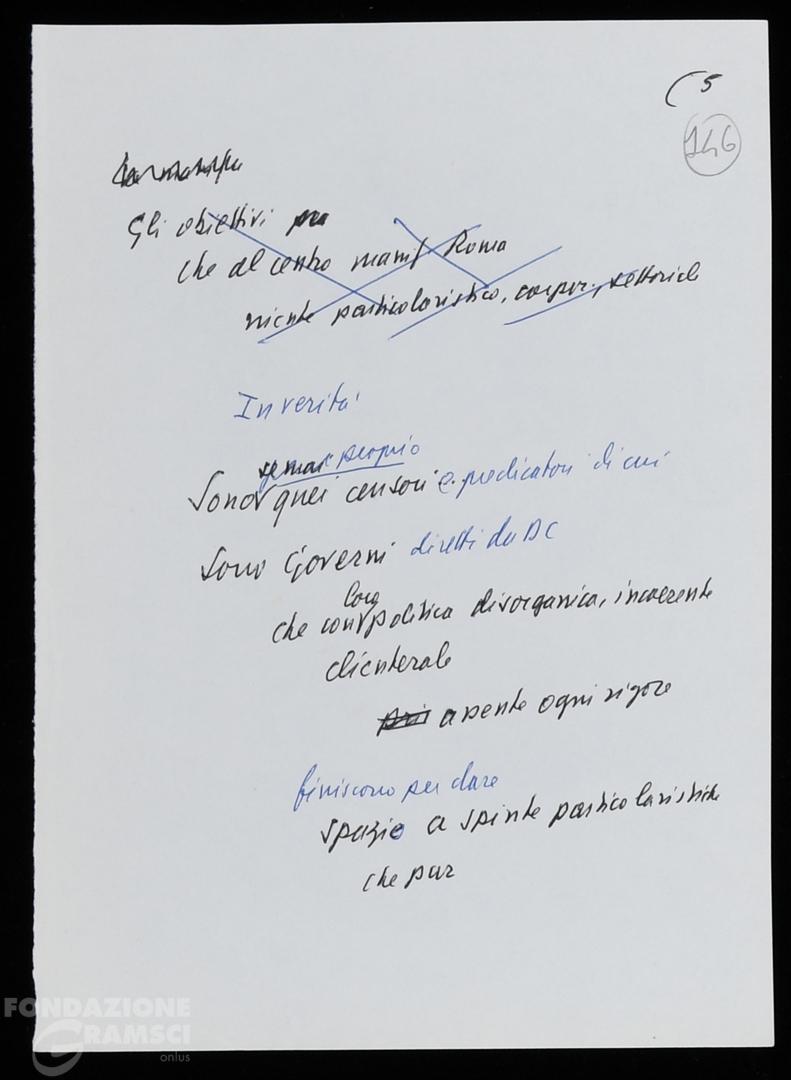 ( 5
146
Gli obiettivi
che al centro manif Roma
niente particolaristico, corpor., settoriale
In verità
semai proprio
Sono quei censori e predicatori di cui
Sono Governi diretti da DC
loro
che con politica disorganica, incoerente
clientelare
assente ogni rigore
finiscono per dare
spazio a spinte particolaristiche
che pur
FONDAZIONE
GRAMSCI
onlus